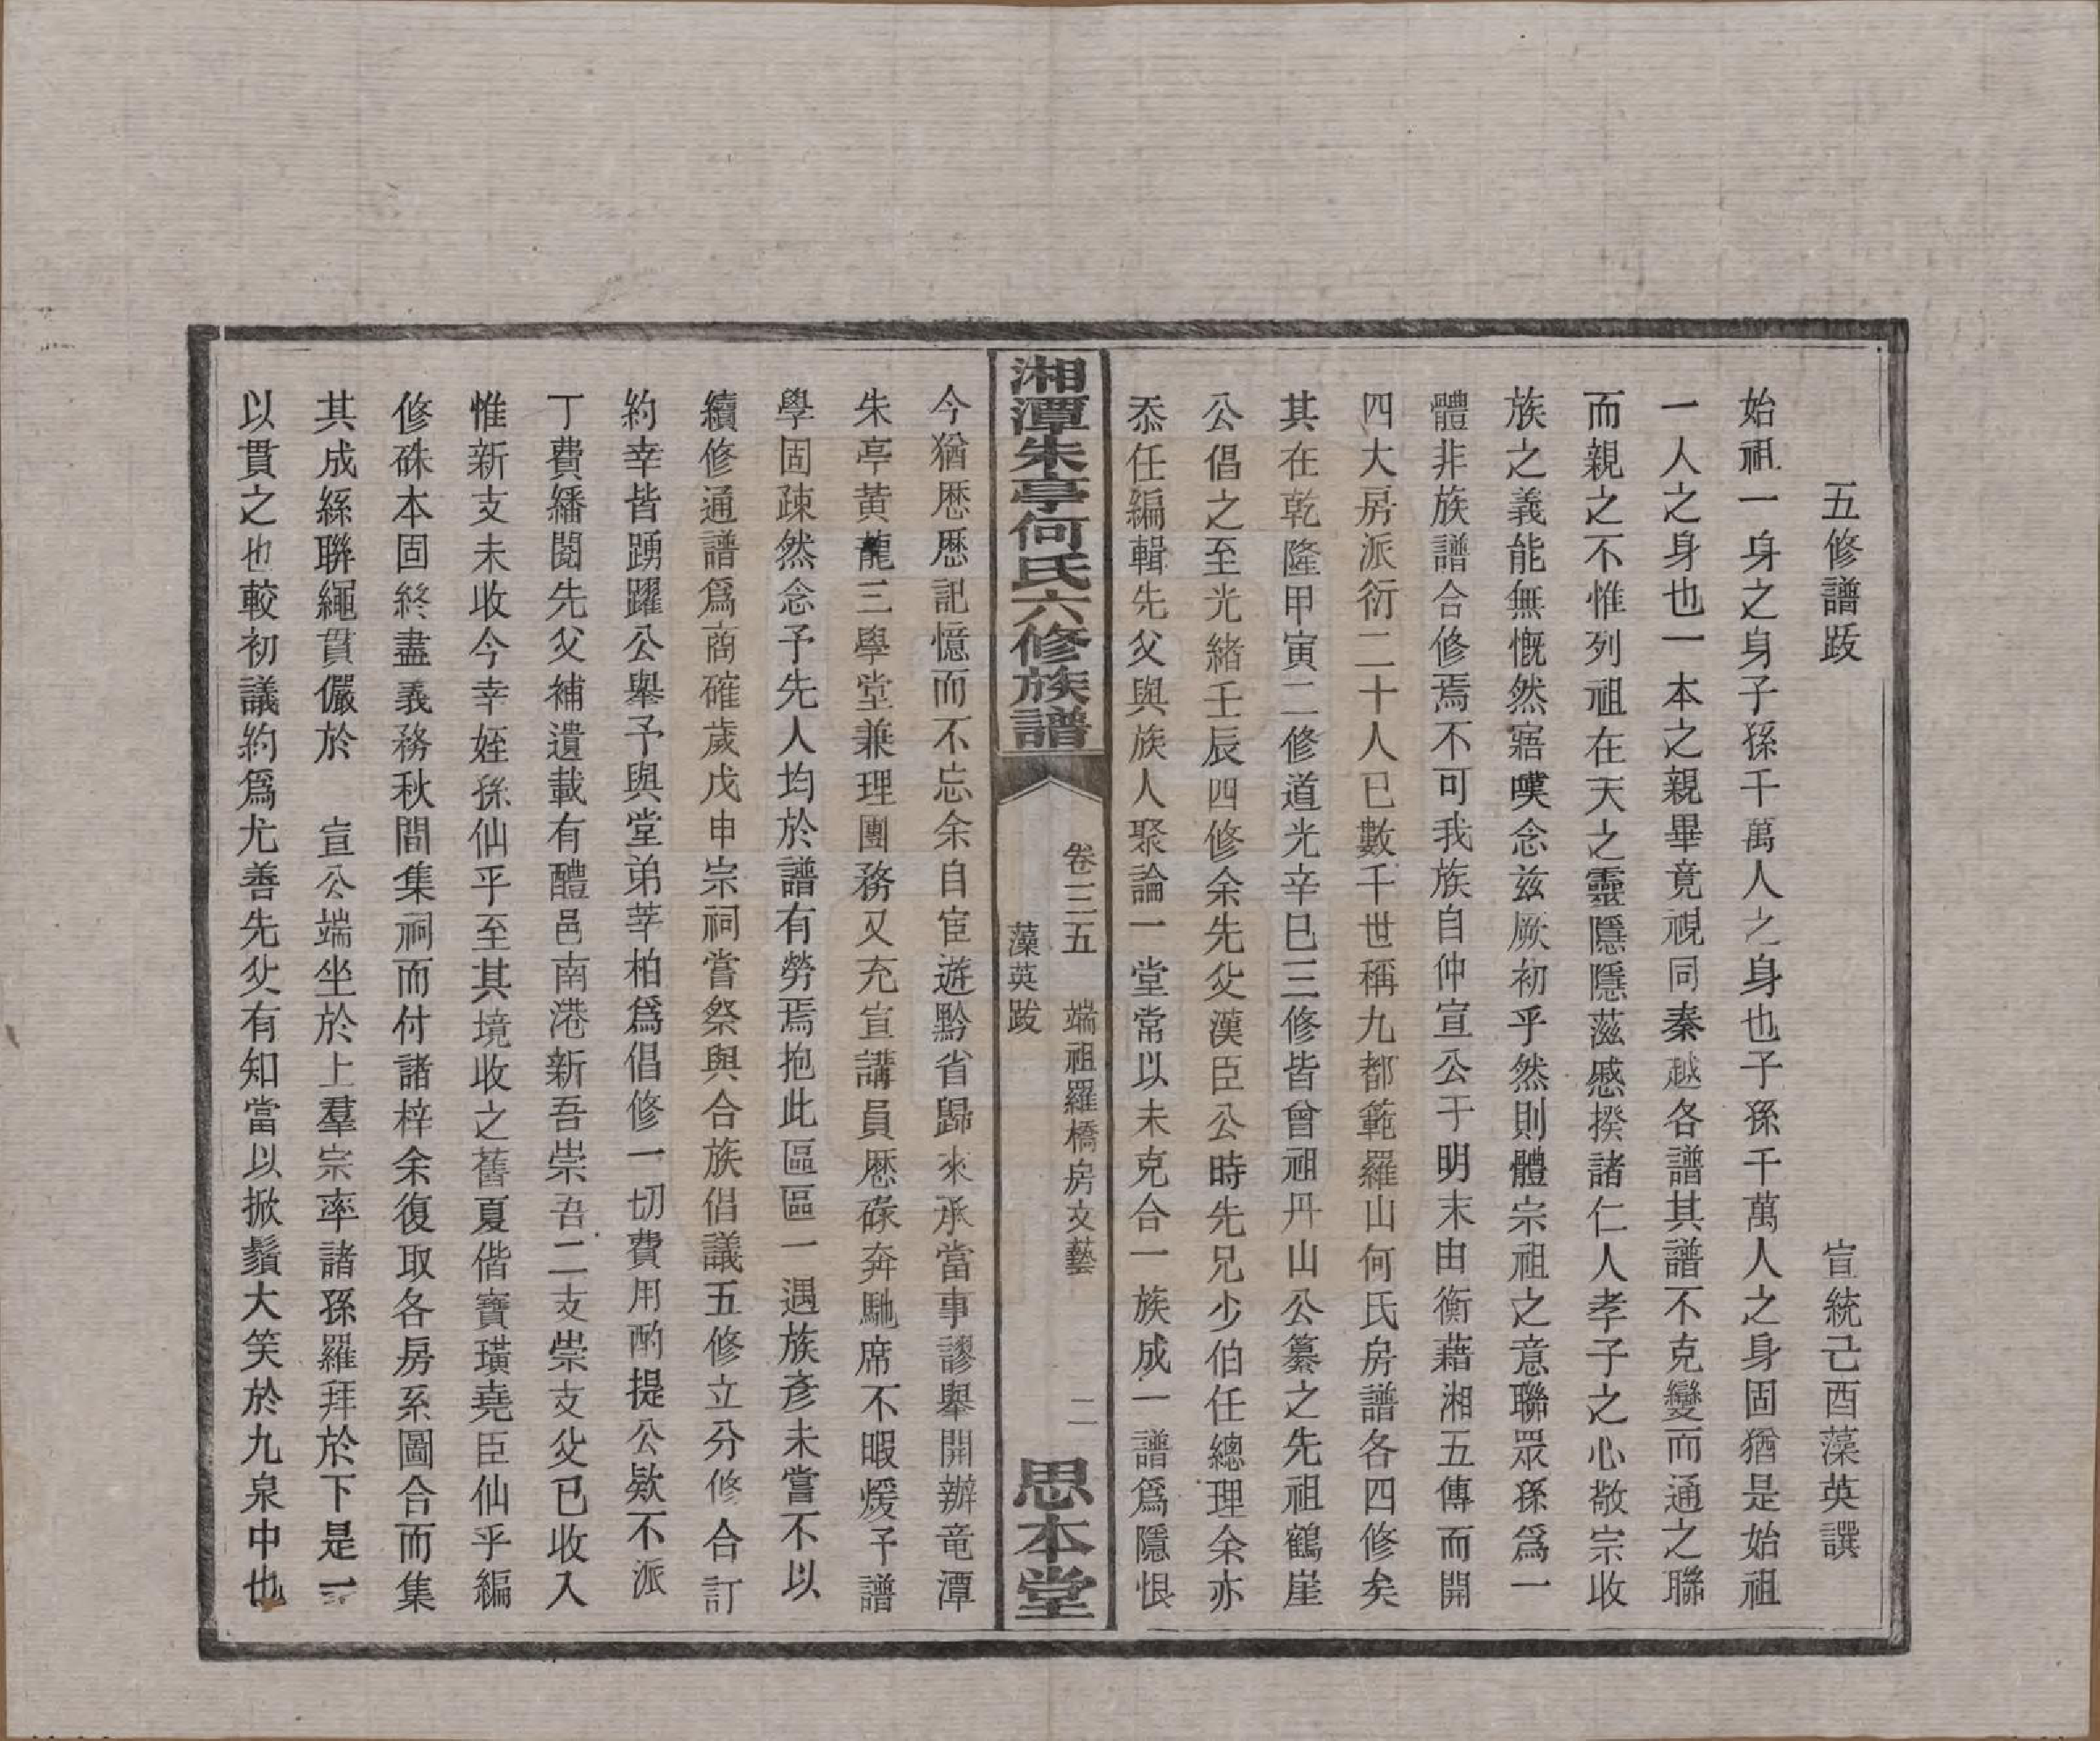 五修譜跋　宣統己酉藻英譔
始祖一身之身子孫千萬人之身也子孫千萬人之身固猶是始祖
一人之身也一本之親畢竟視同秦越各譜其譜不克變而通之聯
而親之不惟列祖在天之靈隱隱滋慼揆諸仁人孝子之心敬宗收
族之義能無慨然寤嘆念兹厥初乎然則體宗祖之意聯眾孫爲一
體非族譜合修焉不可我族自仲宣公于明末由衡藉湘五傳而開
四大房派衍二十人已數千世稱九都範羅山何氏房譜各四修矣
其在乾隆甲寅二修道光辛巳三修皆曾祖丹山公纂之先祖鶴崖
公倡之至光緒壬辰四修余先父漢臣公時先兄少伯任總理余亦
忝任編輯先父與族人聚論一堂常以未克合一族成一譜爲隱恨
湘潭朱亭何氏六修族譜
卷三五　端祖羅橋房文藝　二
藻英跋
思本堂
今猶歷歷記憶而不忘余自宦遊黔省歸來承當事謬舉開辦竜潭
朱亭黄龍三學堂兼理團務又充宣講員歷碌奔馳席不暇煖予譜
學固疎然念予先人均於譜有勞焉抱此區區一遇族彥未嘗不以
續修通譜爲商確歲戊申宗祠嘗祭與合族倡議五修立分修合訂
約幸皆踴躍公舉予與堂弟莘柏爲倡修一切費用酌提公欵不派
丁費繙閱先父補遺載有醴邑南港新吾崇吾二支崇支父已收入
惟新支未收今幸姪孫仙乎至其境收之舊夏偕寶璜堯臣仙乎編
修硃本固終盡義務秋間集祠而付諸梓余復取各房系圖合而集
其成絲聯繩貫儼於　宣公端坐於上羣宗率諸孫羅拜於下是一
以貫之也較初議約爲尤善先父有知當以掀鬚大笑於九泉中也